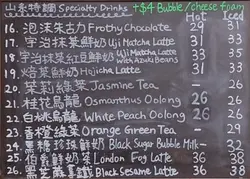 山永特調 Specialty Drinks +$4 Bubble/cheese foam
Hot Iced
16. 泡沫朱古力 Frothy Chocolate 29 31
17. 宇治抹茶鮮奶 Uji Matcha Latte 31 33
18. 宇治抹茶紅豆鮮奶 Uji Matcha Latte With Azuki Beans 33 35
19. 焙茶鮮奶 Hojicha Latte 31 33
20. 茉莉綠茶 Jasmine Tea -
21. 桂花烏龍 Osmanthus Oolong 26 26
22. 白桃烏龍 White Peach Oolong 26 26
23. 香橙綠茶 Orange Green Tea -
24. 黑糖珍珠鮮奶 Black Sugar Bubble Milk - 32
25. 伯爵鮮奶茶 London Fog Latte 36 38
26. 黑芝麻 Black Sesame Latte 36 38